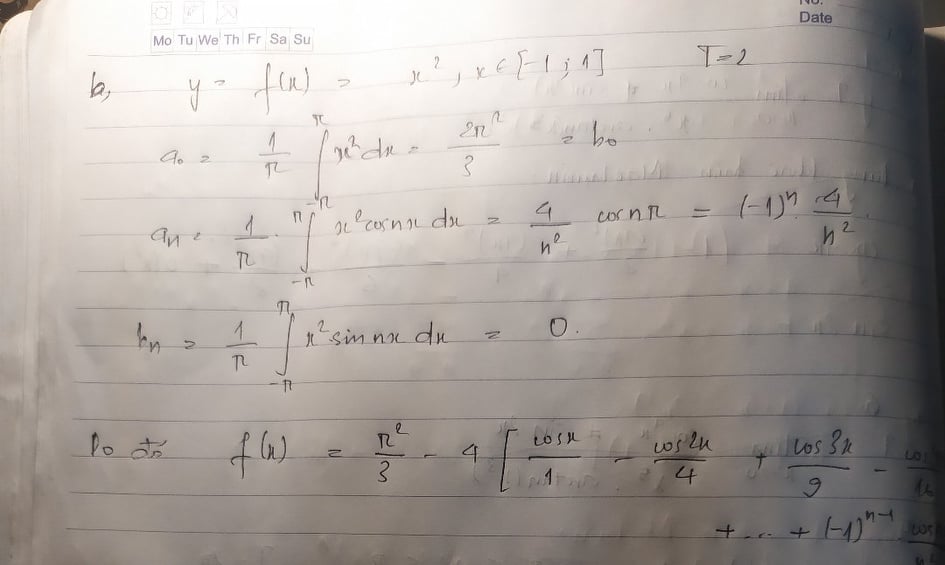 No.
Date
Mo Tu We Th Fr Sa Su
b, y = f(x) = x², x ∈ [-1 ; 1] T=2
a₀ = 1/π ∫_{-π}^{π} x² dx = 2π²/3 = b₀
aₙ = 1/π · ∫_{-π}^{π} x² cos nx dx = 4/n² cos nπ = (-1)ⁿ · 4/n²
bₙ = 1/π ∫_{-π}^{π} x² sin nx dx = 0.
Do đó f(x) = π²/3 - 4 [ cos x/1 - cos 2x/4 + cos 3x/9 - cos
+ ... + (-1)ⁿ⁻¹ cos